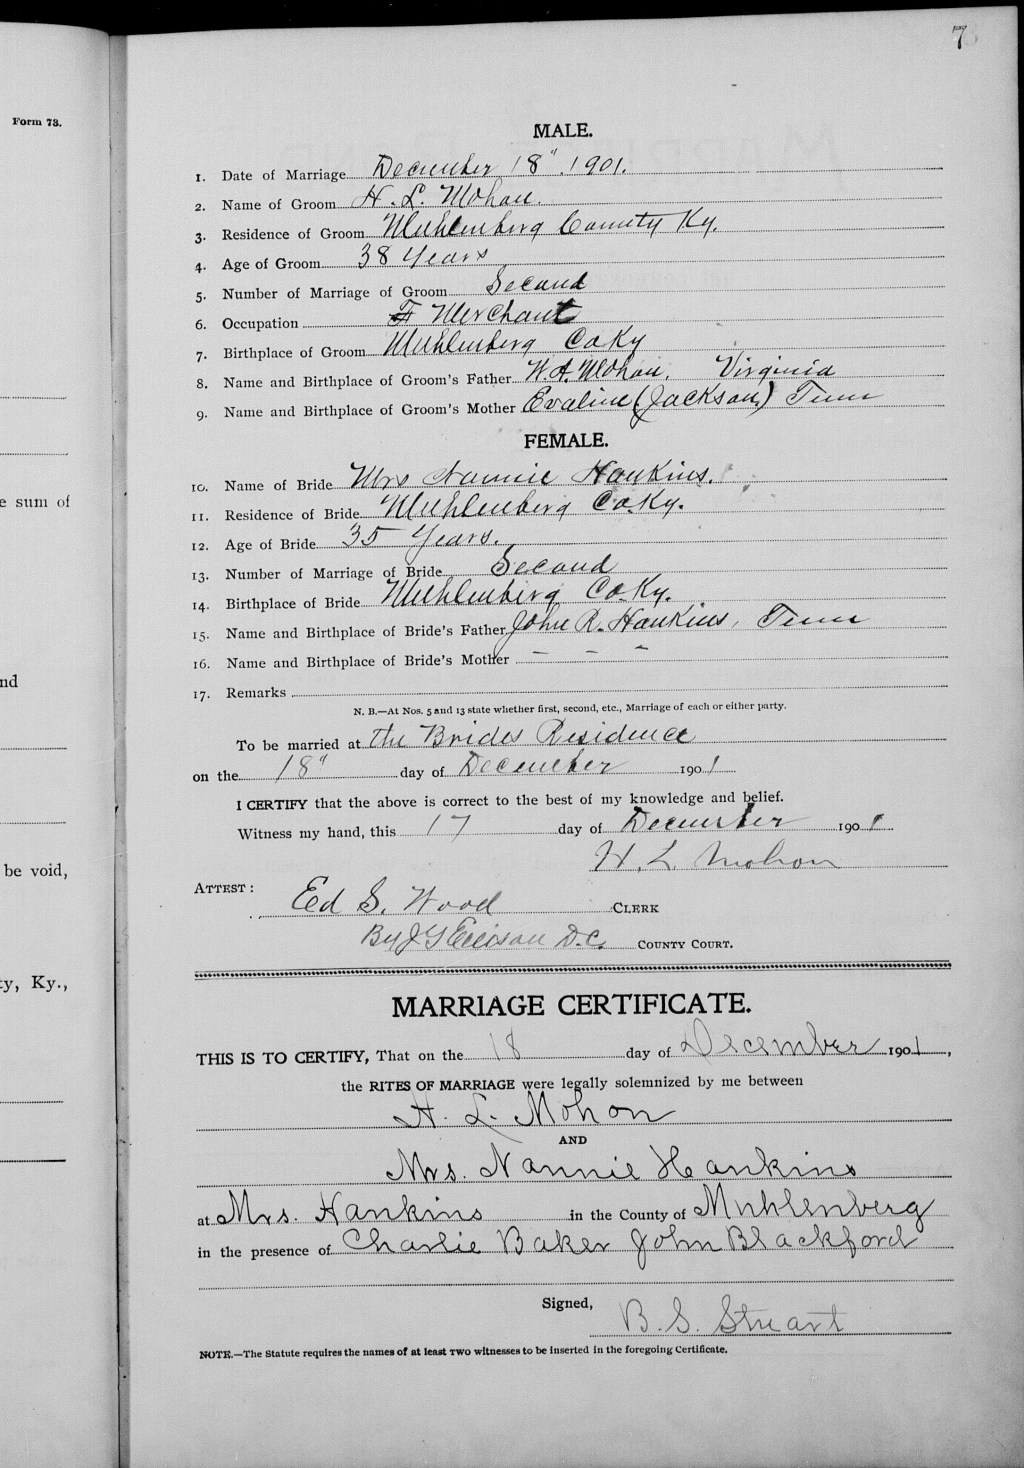 7
Form 73.
MALE.
1. Date of Marriage December 18", 1901.
2. Name of Groom H. L. Mohon.
3. Residence of Groom Muhlenberg County Ky.
4. Age of Groom 38 Years
5. Number of Marriage of Groom Second
6. Occupation Merchant
7. Birthplace of Groom Muhlenberg Co Ky
8. Name and Birthplace of Groom's Father W. A. Mohon, Virginia
9. Name and Birthplace of Groom's Mother Evaline (Jackson) Tenn
FEMALE.
10. Name of Bride Mrs Nannie Hankins.
11. Residence of Bride Muhlenberg Co. Ky.
12. Age of Bride 35 Years.
e sum of
13. Number of Marriage of Bride Second
14. Birthplace of Bride Muhlenberg Co. Ky.
15. Name and Birthplace of Bride's Father John R. Hankins, Tenn
16. Name and Birthplace of Bride's Mother – – –
nd
17. Remarks
N. B.—At Nos. 5 and 13 state whether first, second, etc., Marriage of each or either party.
To be married at the Brides Residence
on the 18" day of December 1901
I CERTIFY that the above is correct to the best of my knowledge and belief.
Witness my hand, this 17 day of December 1901
H. L. Mohon
be void,
ATTEST: Ed S. Wood CLERK
By J G Ellison D.C. COUNTY COURT.
ty, Ky.,
MARRIAGE CERTIFICATE.
THIS IS TO CERTIFY, That on the 18 day of December 1901,
the RITES OF MARRIAGE were legally solemnized by me between
H. L. Mohon
AND
Mrs. Nannie Hankins
at Mrs. Hankins in the County of Muhlenberg
in the presence of Charlie Baker John Blackford
Signed,
B. S. Stuart
NOTE.—The Statute requires the names of at least TWO witnesses to be inserted in the foregoing Certificate.